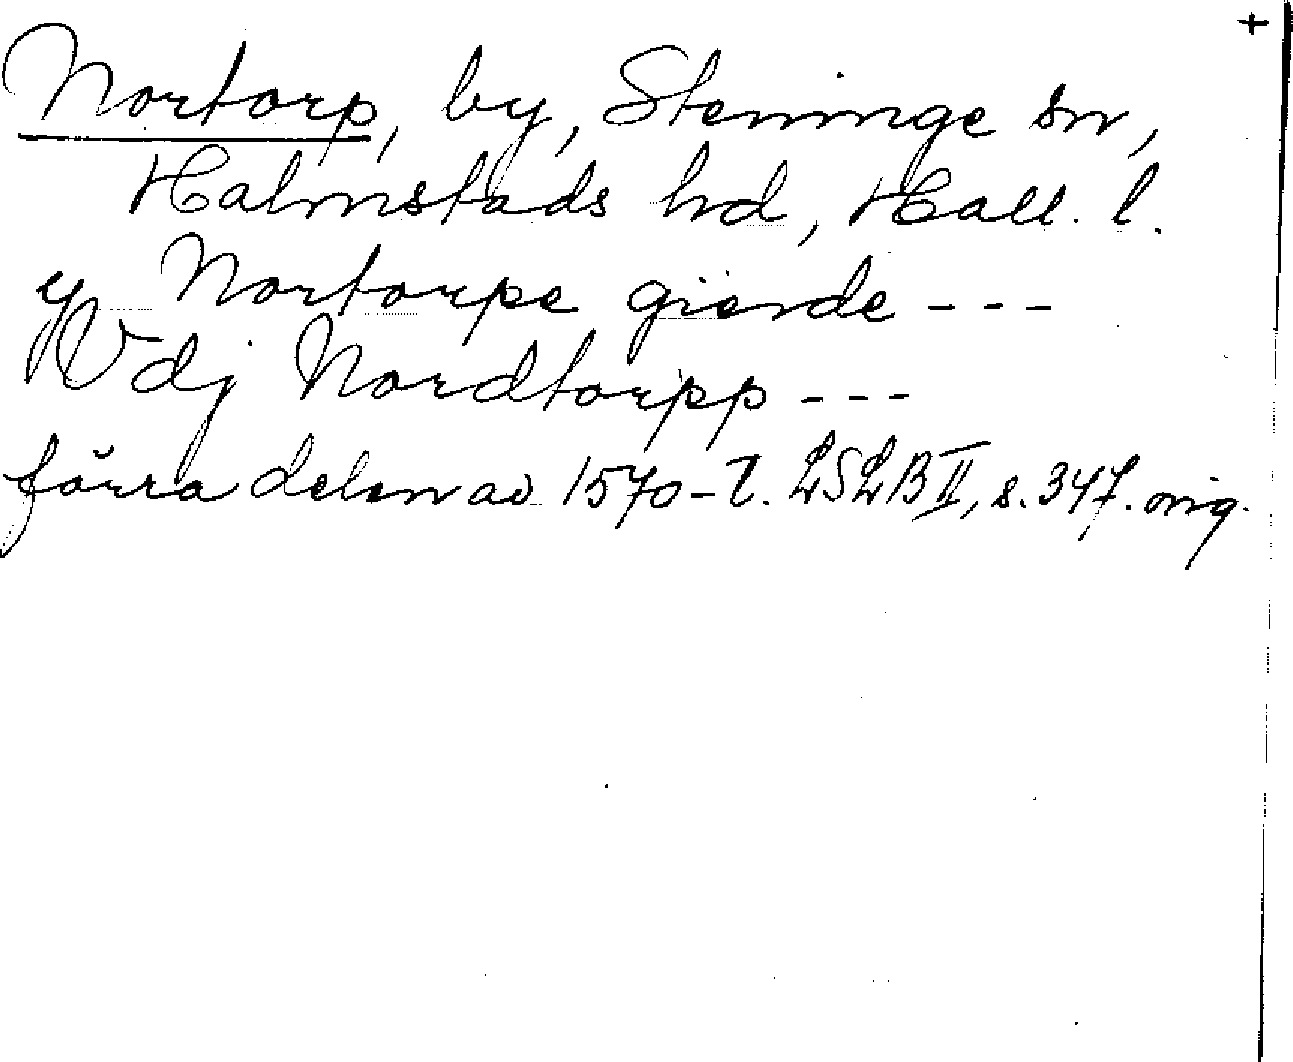 +
Nortorp, by, Steninge sn,
Halmstads hd, Hall. l.
y Nortorpe gierde ---
Wdj Nordtorpp ---
förra delen av 1570-t. LSLB II, s. 347. orig.